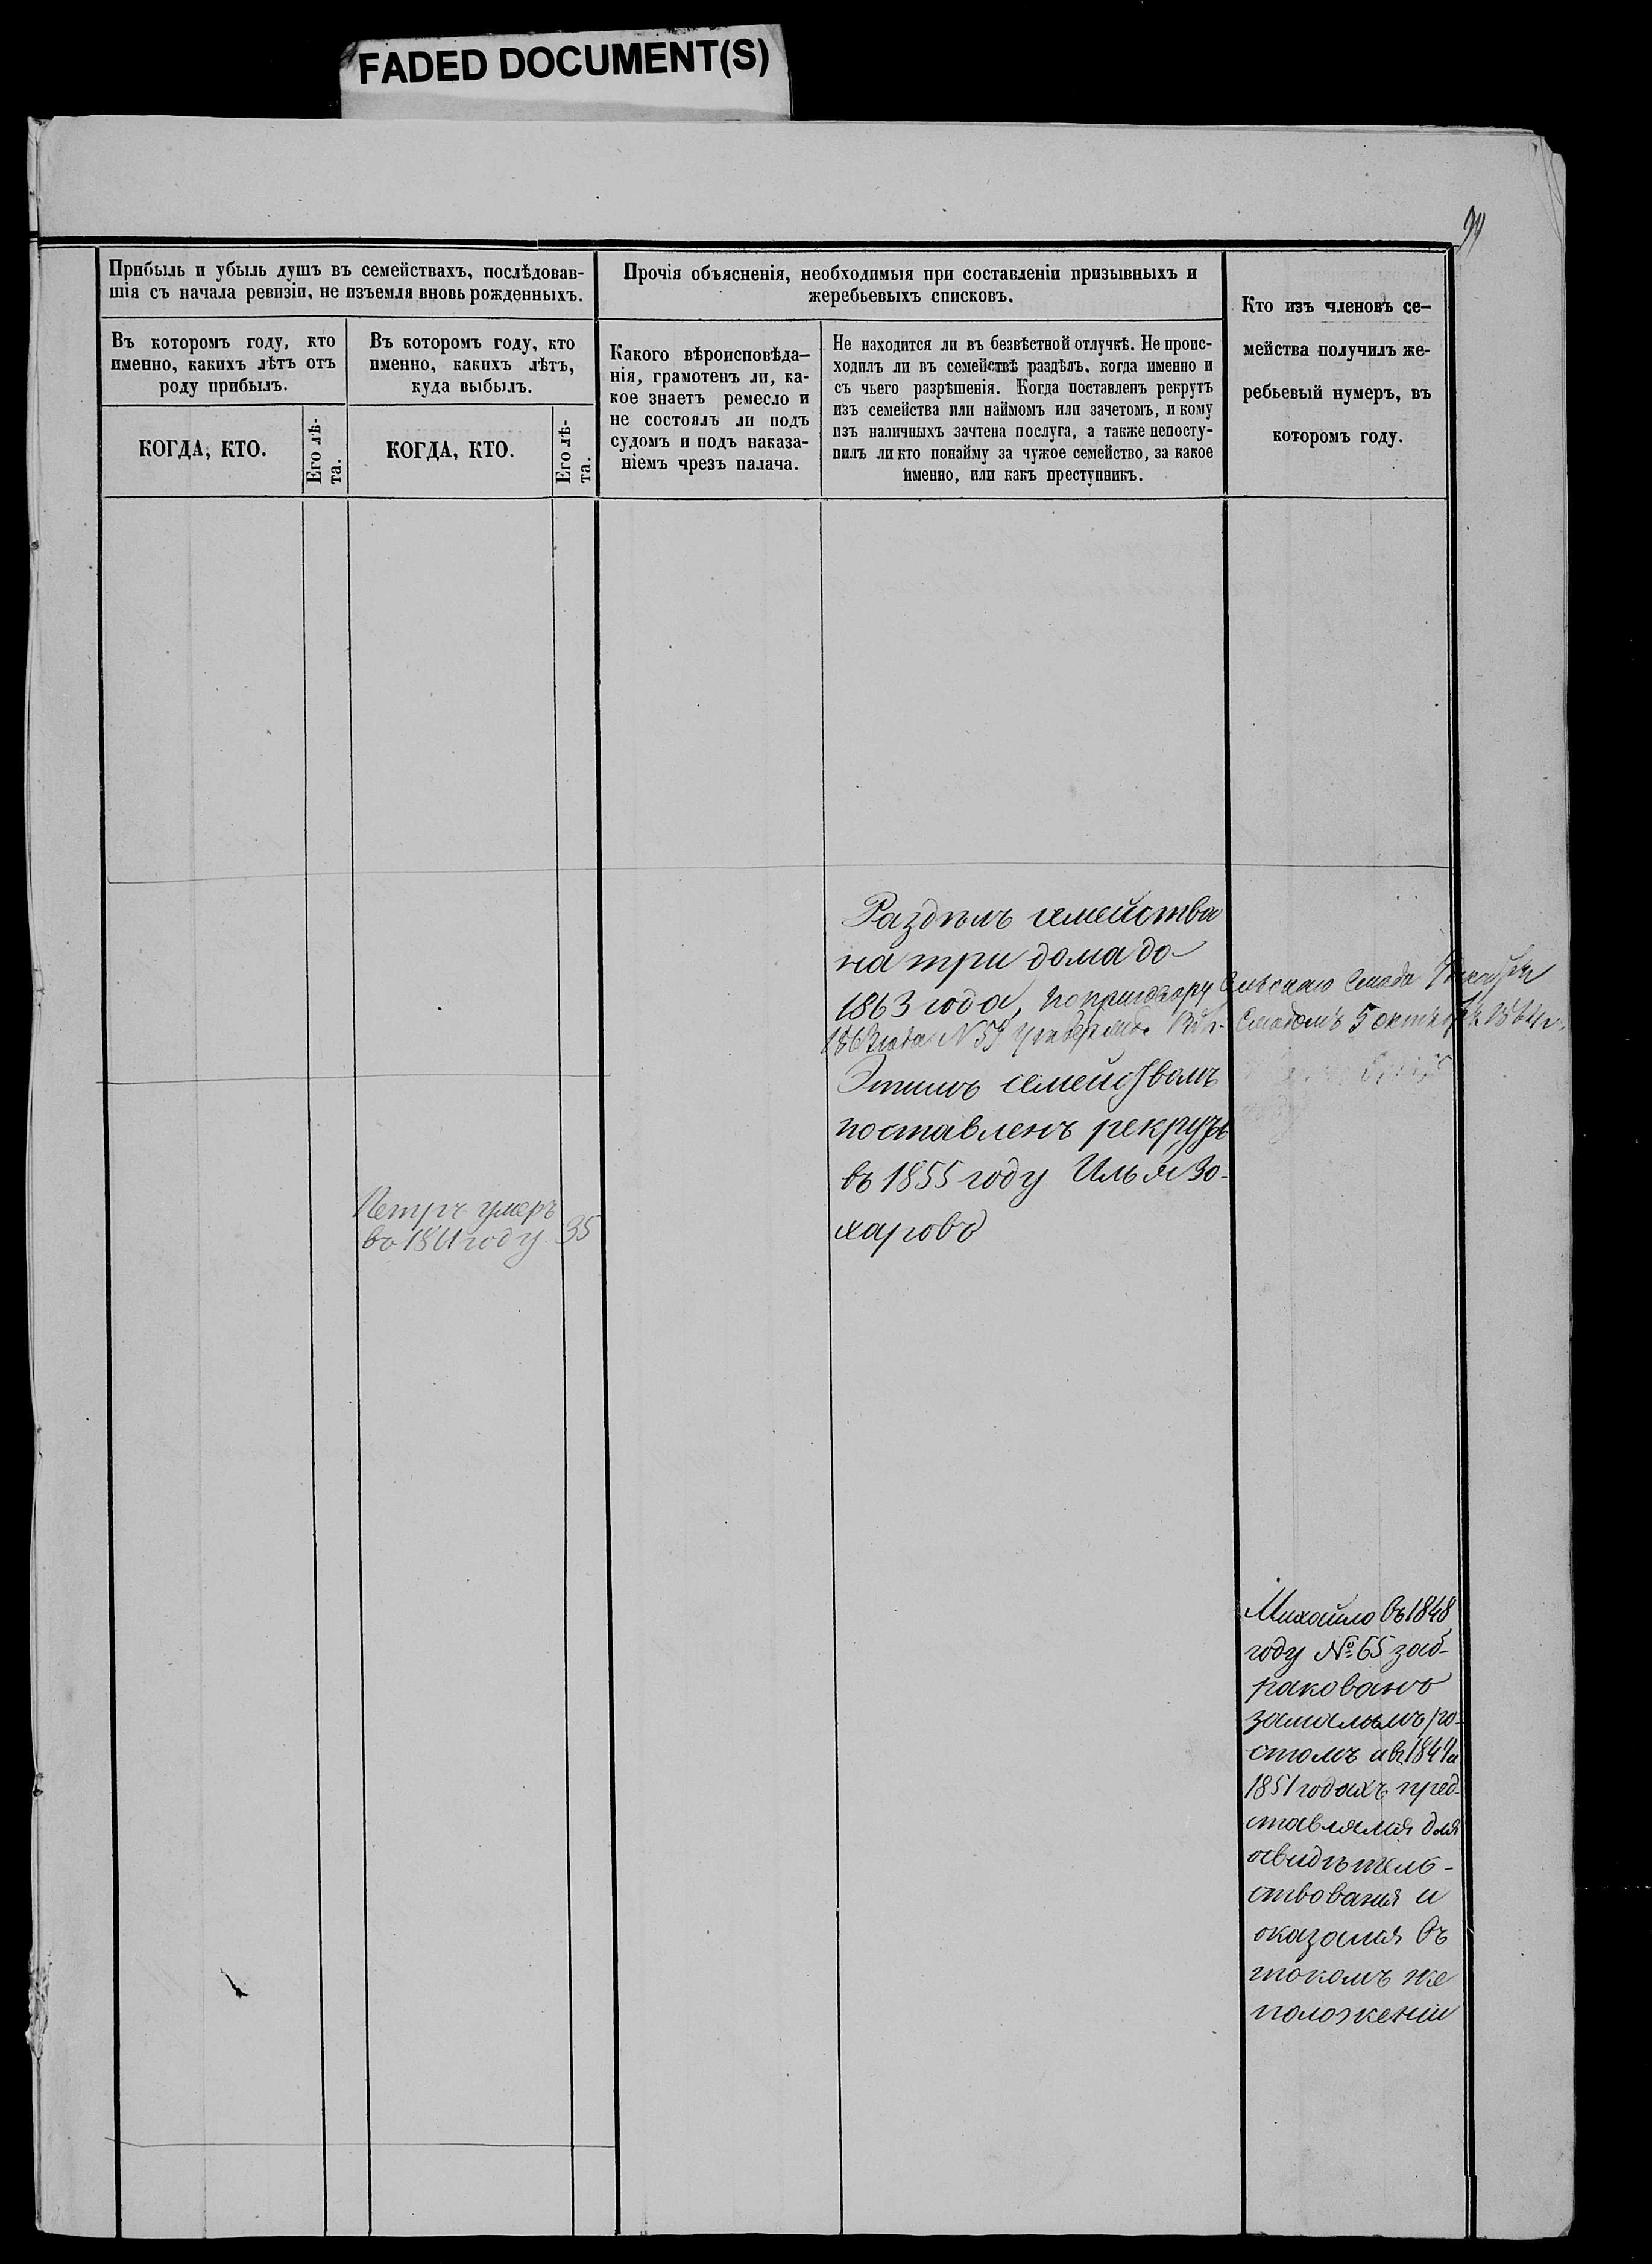 FADED DOCUMENT(S)
99
Прибыль и убыль душъ въ семействахъ, послѣдовав-
шія съ начала ревизіи, не изъемля вновь рожденныхъ.
Въ которомъ году, кто
именно, какихъ лѣтъ отъ
роду прибылъ.
КОГДА, КТО.
Его лѣ-
та.
Въ которомъ году, кто
именно, какихъ лѣтъ,
куда выбылъ.
КОГДА, КТО.
Его лѣ-
та.
Прочія объясненія, необходимыя при составленіи призывныхъ и
жеребьевыхъ списковъ.
Какого вѣроисповѣда-
нія, грамотенъ ли, ка-
кое знаетъ ремесло и
не состоялъ ли подъ
судомъ и подъ наказа-
ніемъ чрезъ палача.
Не находится ли въ безвѣстной отлучкѣ. Не проис-
ходилъ ли въ семействѣ раздѣлъ, когда именно и
съ чьего разрѣшенія. Когда поставленъ рекрутъ
изъ семейства или наймомъ или зачетомъ, и кому
изъ наличныхъ зачтена послуга, а также непосту-
пилъ ли кто понайму за чужое семейство, за какое
именно, или какъ преступникъ.
Кто изъ членовъ се-
мейства получилъ же-
ребьевый нумеръ, въ
которомъ году.
Раздѣлъ семейства
на три дома до
1863 года, по приговору Сельскаго Схода
1863 года N 59 Сходомъ 5 октября 1864 г.
Этимъ семействомъ
поставленъ рекрутъ
въ 1855 году Илья За-
харовъ
Петръ умеръ
въ 1861 году 35
Михайло въ 1848
году № 65 заб-
ракованъ
замалымъ ро-
стомъ
1851 годахъ пред-
ставлялся для
освидѣтель-
ствованія и
оказался въ
такомъ же
положеніи